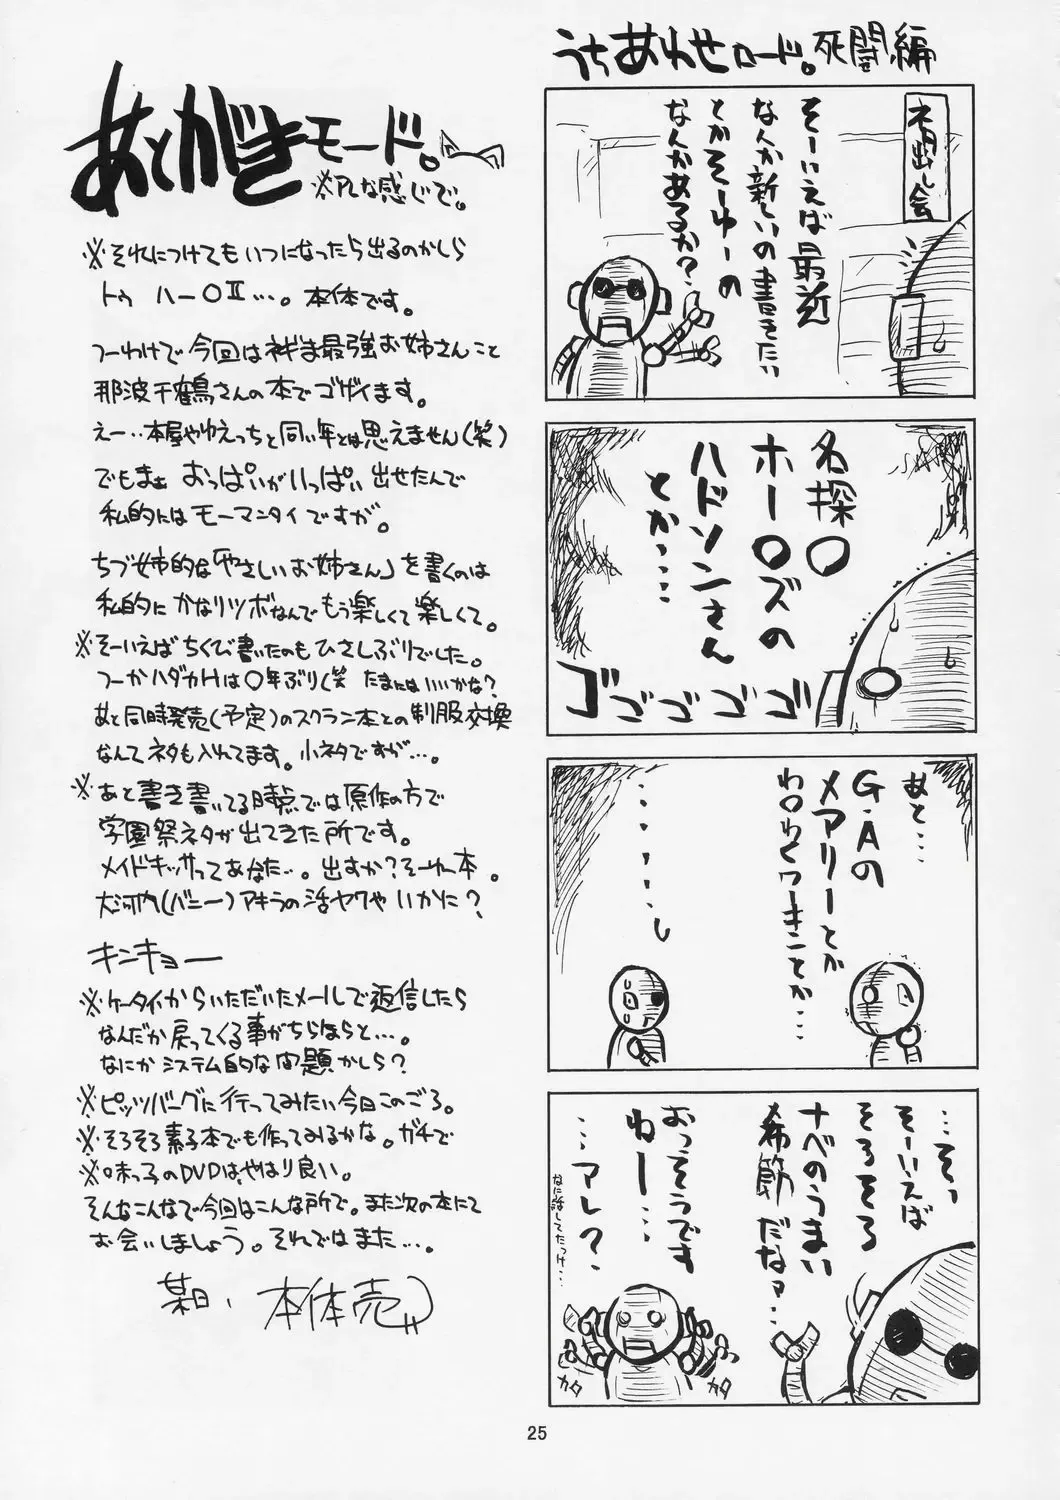 うちあわせロード。死闘編
ネタ出し会
そーいえば最近
なんか新しいの書きたい
とかそーゆーの
なんかあるか?
名探〇
ホー〇ズの
ハドソンさん
とか…
ゴゴゴゴゴ
あと…
G・Aの
メアリーとか
わ〇わくワーキンことか…
……
…そっ
そーいえば
そろそろ
ナベのうまい
希節だなァ…
おっそうです
ねー…
…アレ?
なに話してたっけ…
カタ
カタ
あとがきモード。
※アレな感じで。
※それにつけてもいつになったら出るのかしら
トゥ ハー〇Ⅱ…。本体です。
つーわけで今回はネギま最強お姉さんこと
那波千鶴さんの本でゴザイます。
えー‥本屋やゆえっちと同い年とは思えません(笑)
でもまぁ おっぱいがいっぱい出せたんで
私的にはモーマンタイですが。
ちづ姉的な「やさしいお姉さん」を書くのは
私的にかなりツボなんでもう楽しくて楽しくて。
※そーいえばちくび書いたのもひさしぶりでした。
つーかハダカHは〇年ぶり(笑 たまにはいいかな?
あと同時発売(予定)のスクラン本との制服交換
なんてネタも入れてます。小ネタですが…。
※あと書き書いてる時点では原作の方で
学園祭ネタが出てきた所です。
メイドキッサってあなた…。出すか?そーゆー本。
大河内(バニー)アキラの活ヤクやいかに?
キンキョー
※ケータイからいただいたメールで返信したら
なんだか戻ってくる事がちらほらと…。
なにかシステム的な問題かしら?
※ピッツバーグに行ってみたい今日このごろ。
※そろそろ素子本でも作ってみるかな。ガチで
※〇味っ子のDVDは、やはり良い。
そんなこんなで今回はこんな所で。また次の本にて
お会いしましょう。それではまた…。
某日、本体売
25